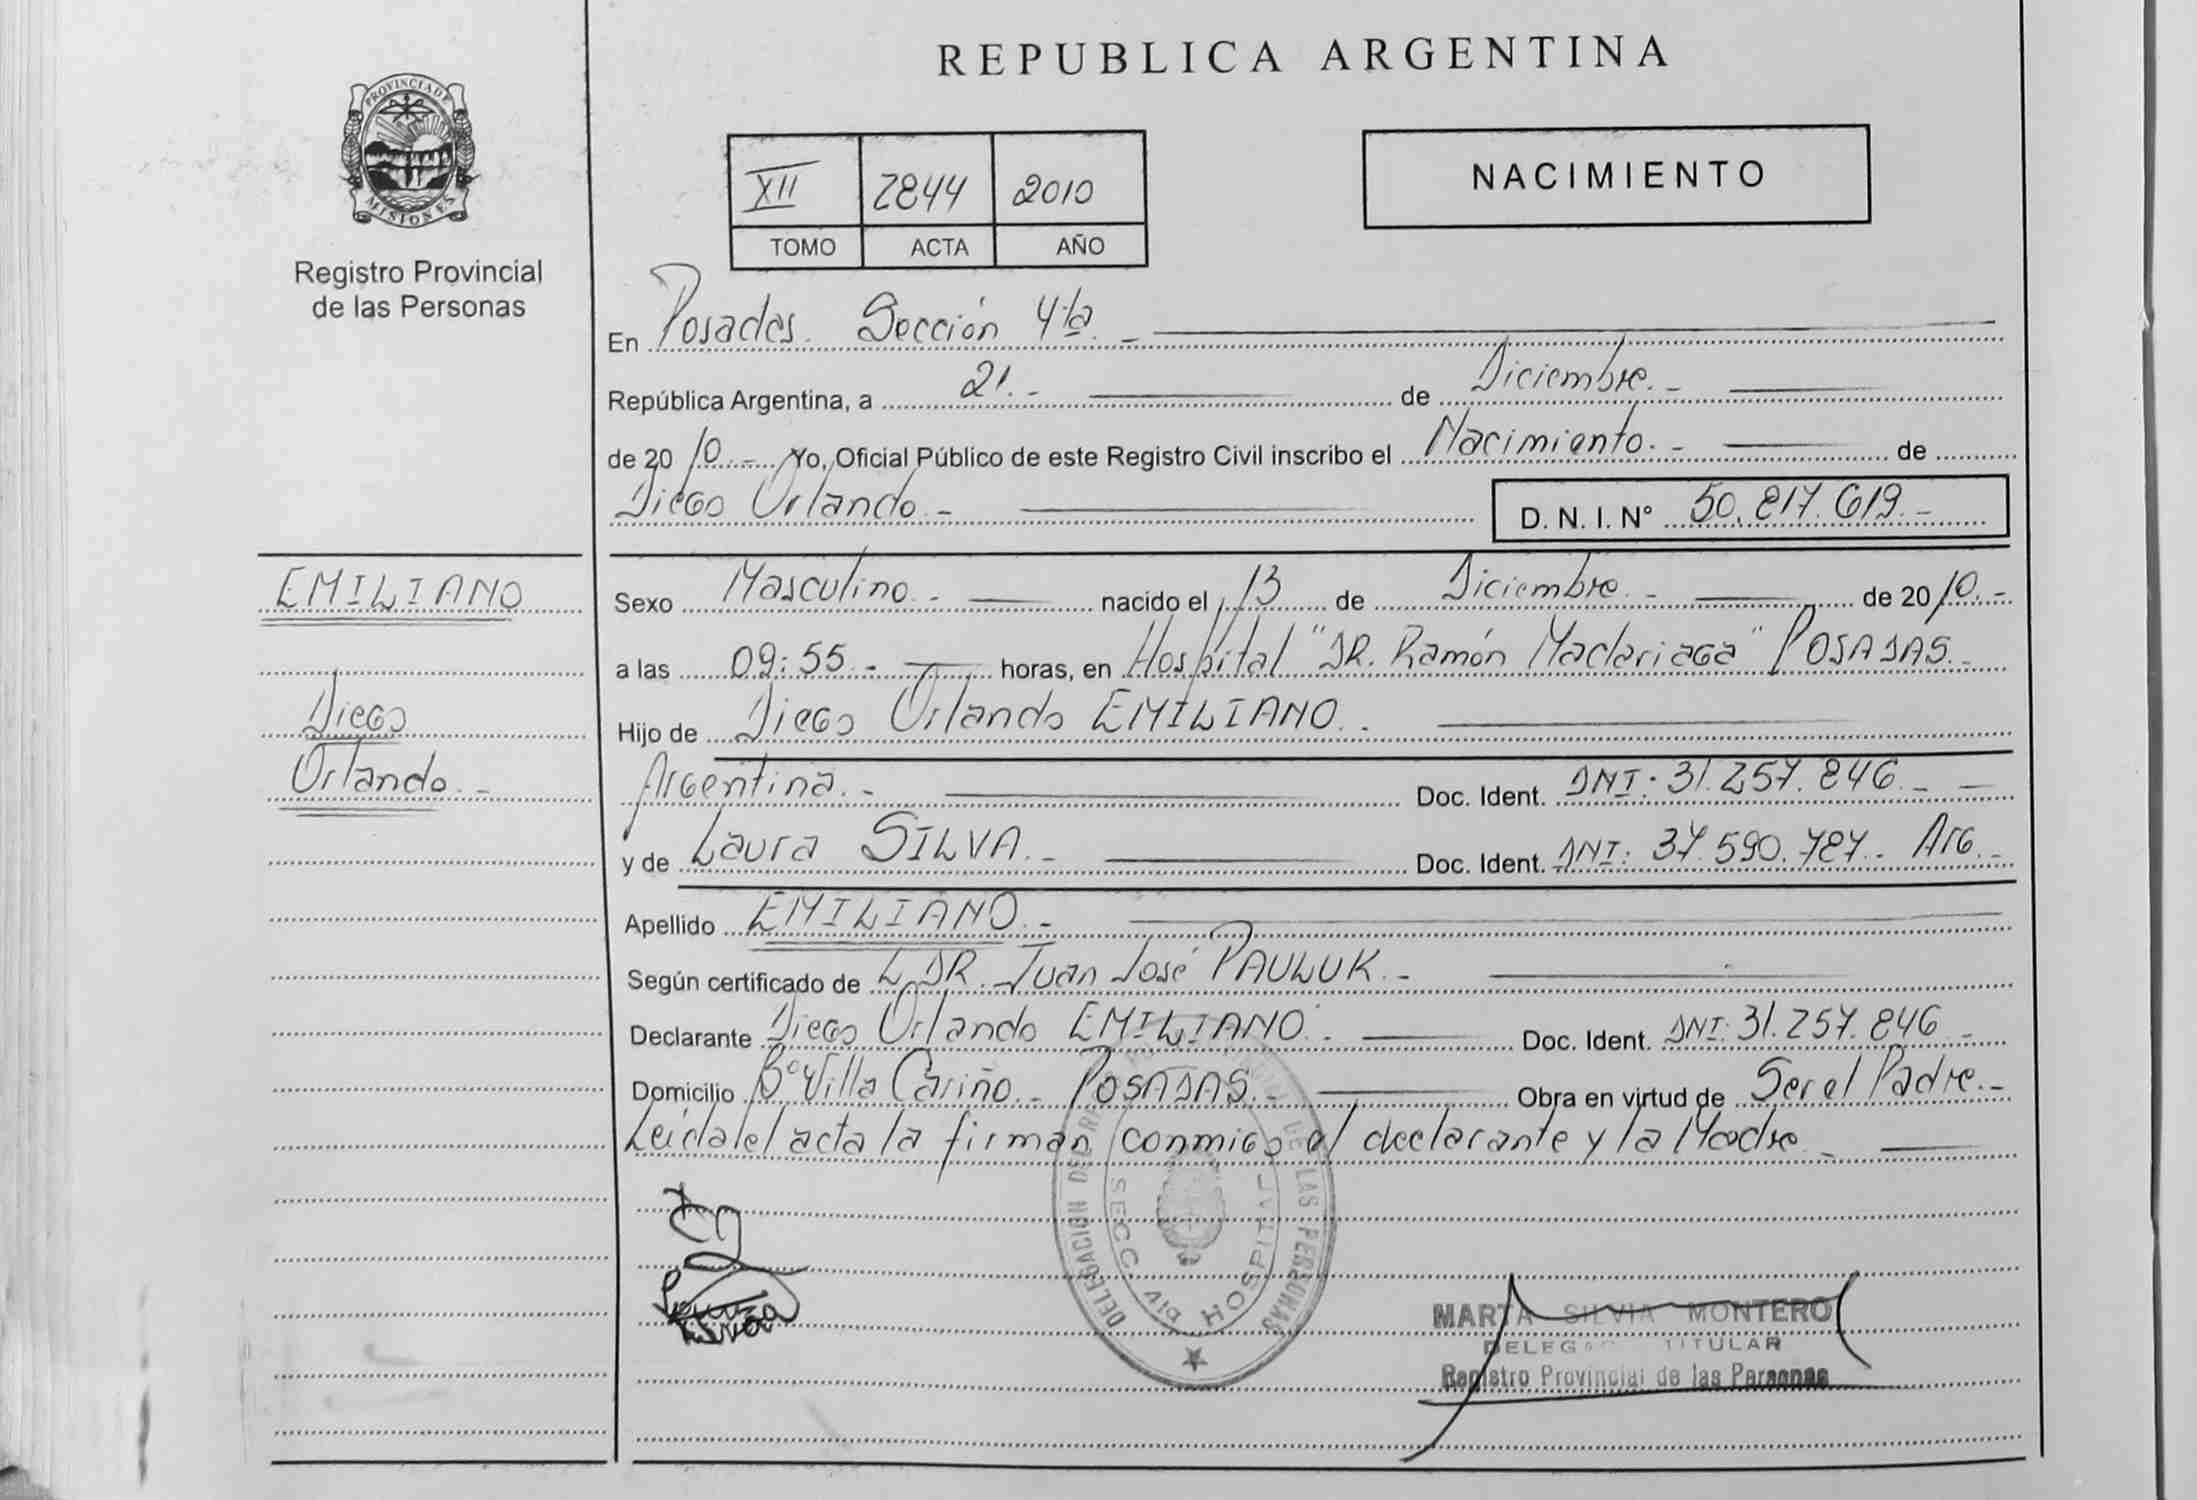 REPUBLICA ARGENTINA
PROVINCIA DE
MISIONES
Registro Provincial
de las Personas
XII 2844 2010
TOMO ACTA AÑO
NACIMIENTO
En Posadas. Sección 4ta.-
República Argentina, a 21.- de Diciembre.-
de 2010.- Yo, Oficial Público de este Registro Civil inscribo el Nacimiento.- de
Diego Orlando.- D. N. I. Nº 50.817.619.-
EMILIANO
Diego
Orlando.-
Sexo Masculino.- nacido el 13 de Diciembre.- de 2010.-
a las 09:55.- horas, en Hospital "DR. Ramón Madariaga" POSADAS.-
Hijo de Diego Orlando EMILIANO.-
Argentina.- Doc. Ident. DNI: 31.257.846.-
y de Laura SILVA.- Doc. Ident. DNI: 37.590.787.- Arg.-
Apellido EMILIANO.-
Según certificado de DR. Juan José PAULUK.-
Declarante Diego Orlando EMILIANO.- Doc. Ident. DNI: 31.257.846.-
Domicilio Bº Villa Cariño.- POSADAS.- Obra en virtud de Ser el Padre.-
Leída el acta la firman conmigo el declarante y la Madre.-
DELEGACION DEL DE LAS PERSONAS
SECC. 4ta HOSPITAL
MARTA SILVIA MONTERO
TITULAR
Registro Provincial de las Personas